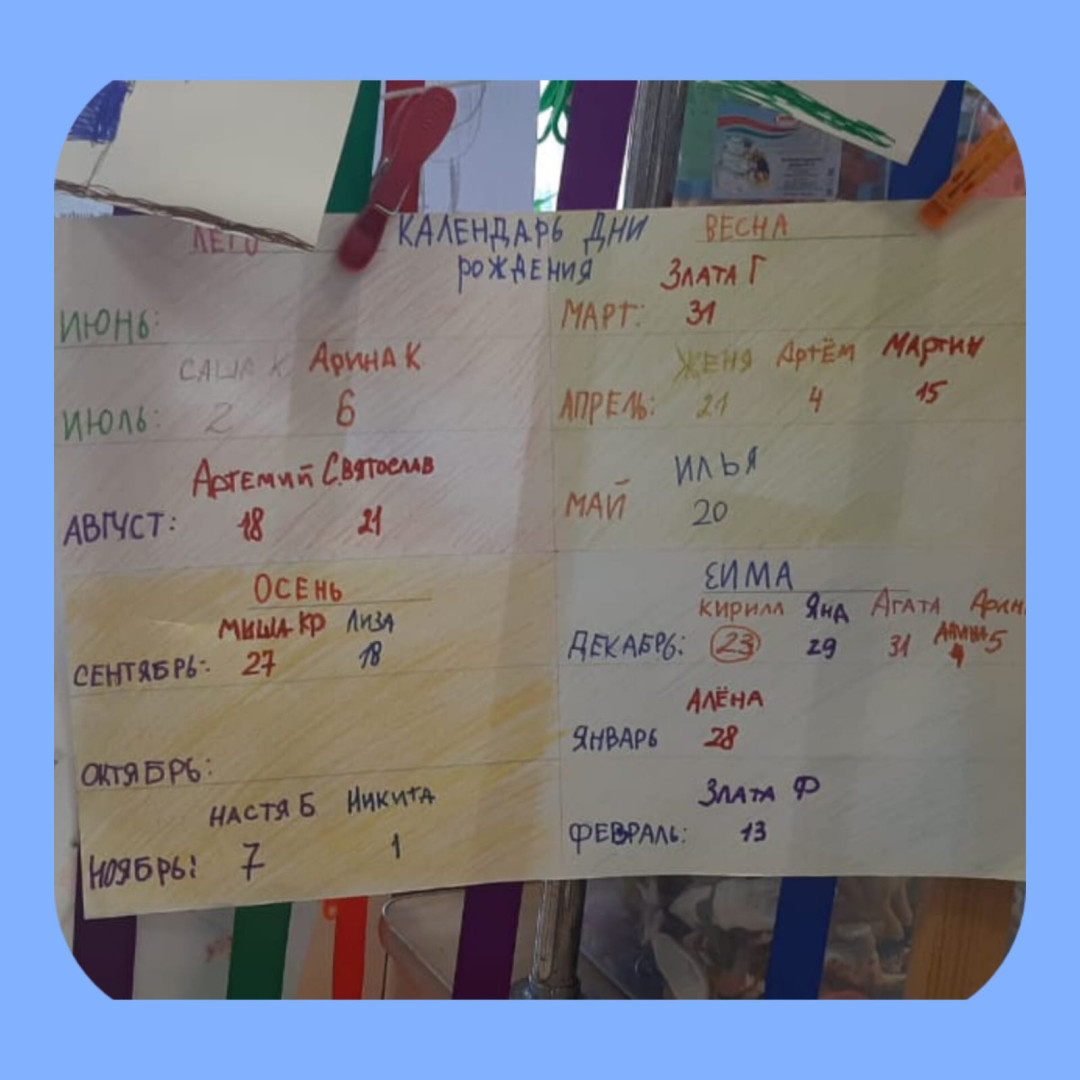 КАЛЕНДАРЬ ДНИ
РОЖДЕНИЯ
ЛЕТО
ИЮНЬ:
САША К АРИНА К.
ИЮЛЬ: 2 6
АРТЕМИЙ СВЯТОСЛАВ
АВГУСТ: 18 21
ВЕСНА
ЗЛАТА Г
МАРТ: 31
ЖЕНЯ АРТЁМ МАРТИН
АПРЕЛЬ: 21 4 15
ИЛЬЯ
МАЙ 20
ОСЕНЬ
МИША КР ЛИЗА
СЕНТЯБРЬ: 27 18
ОКТЯБРЬ:
НАСТЯ Б НИКИТА
НОЯБРЬ: 7 1
ЗИМА
КИРИЛЛ ЯНА АГАТА
ДЕКАБРЬ: 23 29 31 5
АЛЁНА
ЯНВАРЬ 28
ЗЛАТА Ф
ФЕВРАЛЬ: 13